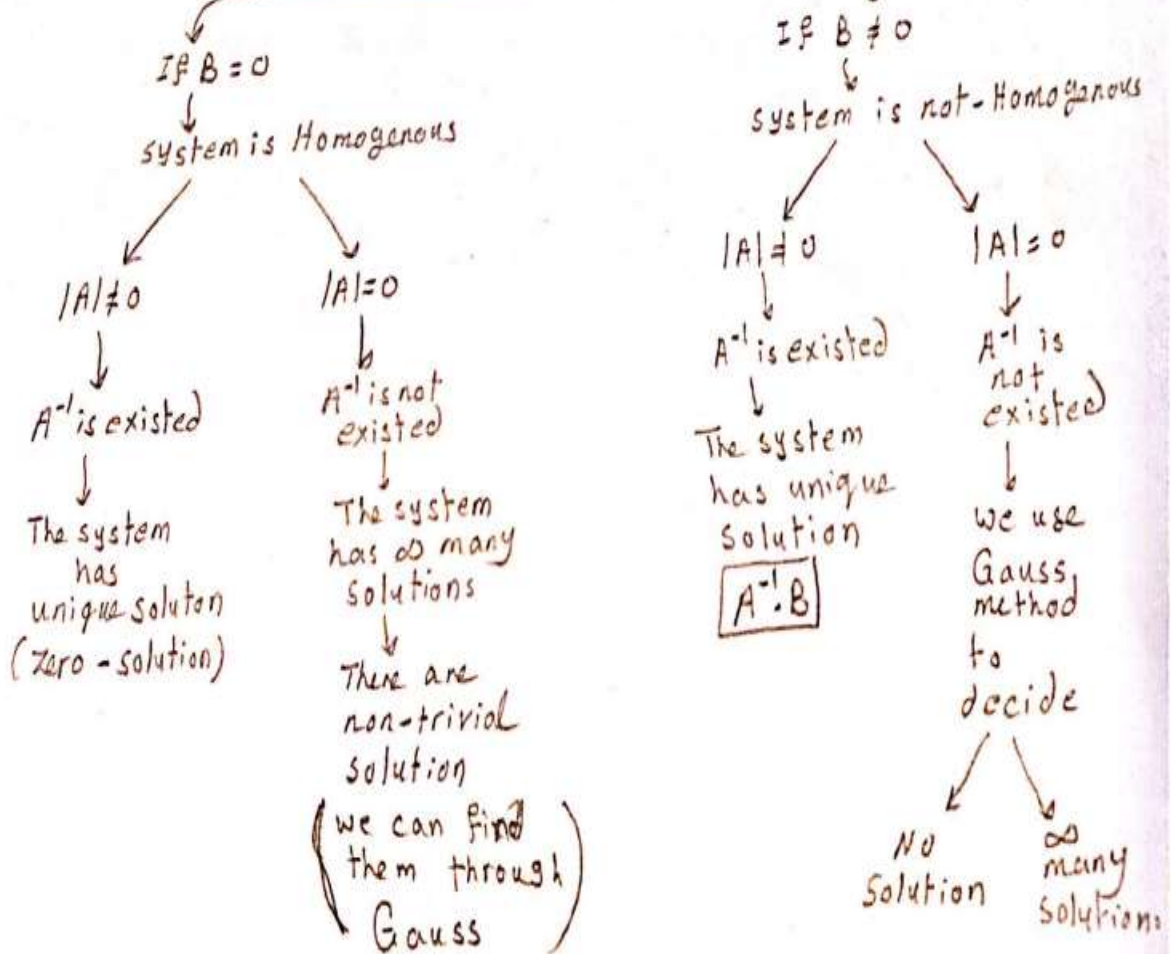 If B = 0
system is Homogenous
|A| ≠ 0
A⁻¹ is existed
The system
has
unique soluton
(zero - solution)
|A| = 0
A⁻¹ is not
existed
The system
has ∞ many
solutions
There are
non-trivial
solution
(we can find
them through
Gauss)
If B ≠ 0
system is not-Homogenous
|A| ≠ 0
A⁻¹ is existed
The system
has unique
solution
A⁻¹. B
|A| = 0
A⁻¹ is
not
existed
we use
Gauss
method
to
decide
No
Solution
∞
many
solutions